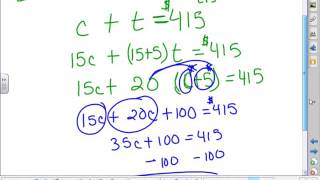 c + t = $415
15c + (15+5)t = $415
15c + 20 (c+5) = $415
15c + 20c + 100 = $415
35c + 100 = 415
- 100 - 100